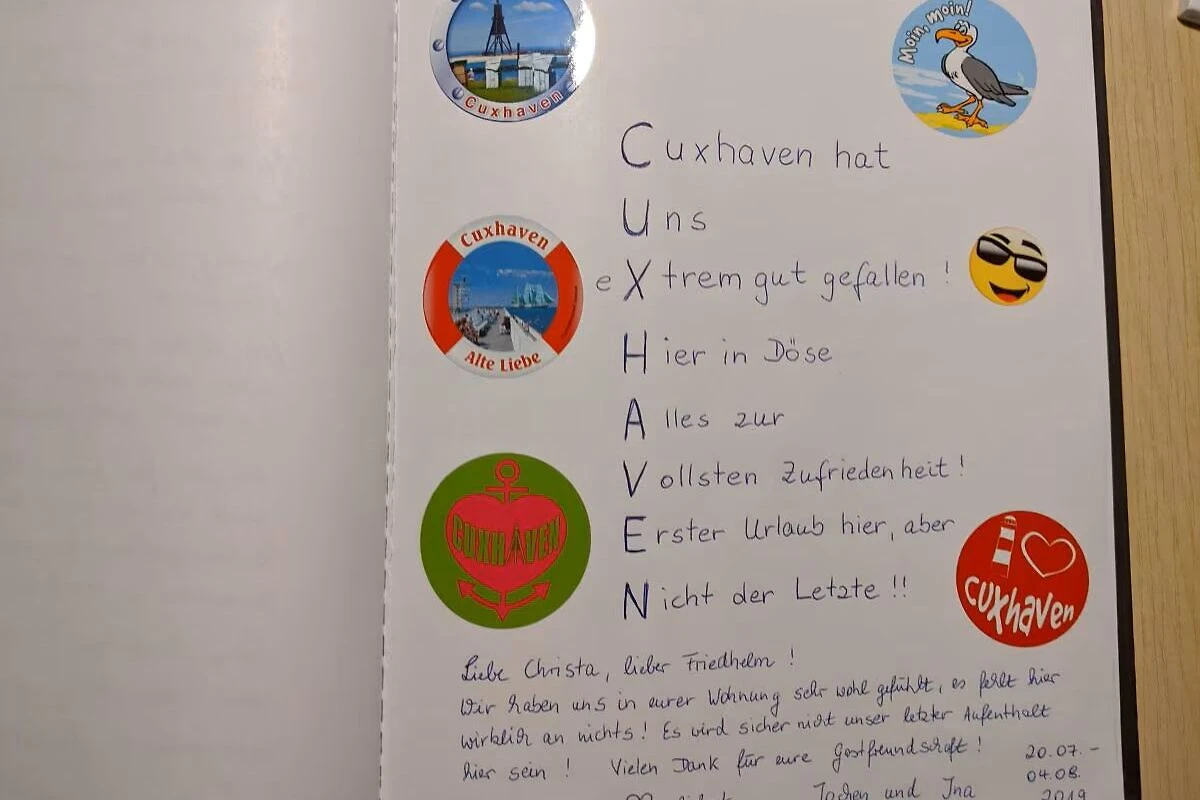 Cuxhaven
Moin, moin!
Cuxhaven hat
Uns
eXtrem gut gefallen !
Cuxhaven
Alte Liebe
Hier in Döse
Alles zur
Vollsten Zufriedenheit !
CUXHAVEN
Erster Urlaub hier, aber
Nicht der Letzte !!
I
cuxhaven
Liebe Christa, lieber Friedhelm !
Wir haben uns in eurer Wohnung sehr wohl gefühlt, es fehlt hier
wirklich an nichts ! Es wird sicher nicht unser letzter Aufenthalt
hier sein ! Vielen Dank für eure Gastfreundschaft !
20.07.-
04.08.
2019
Jochen und Ina